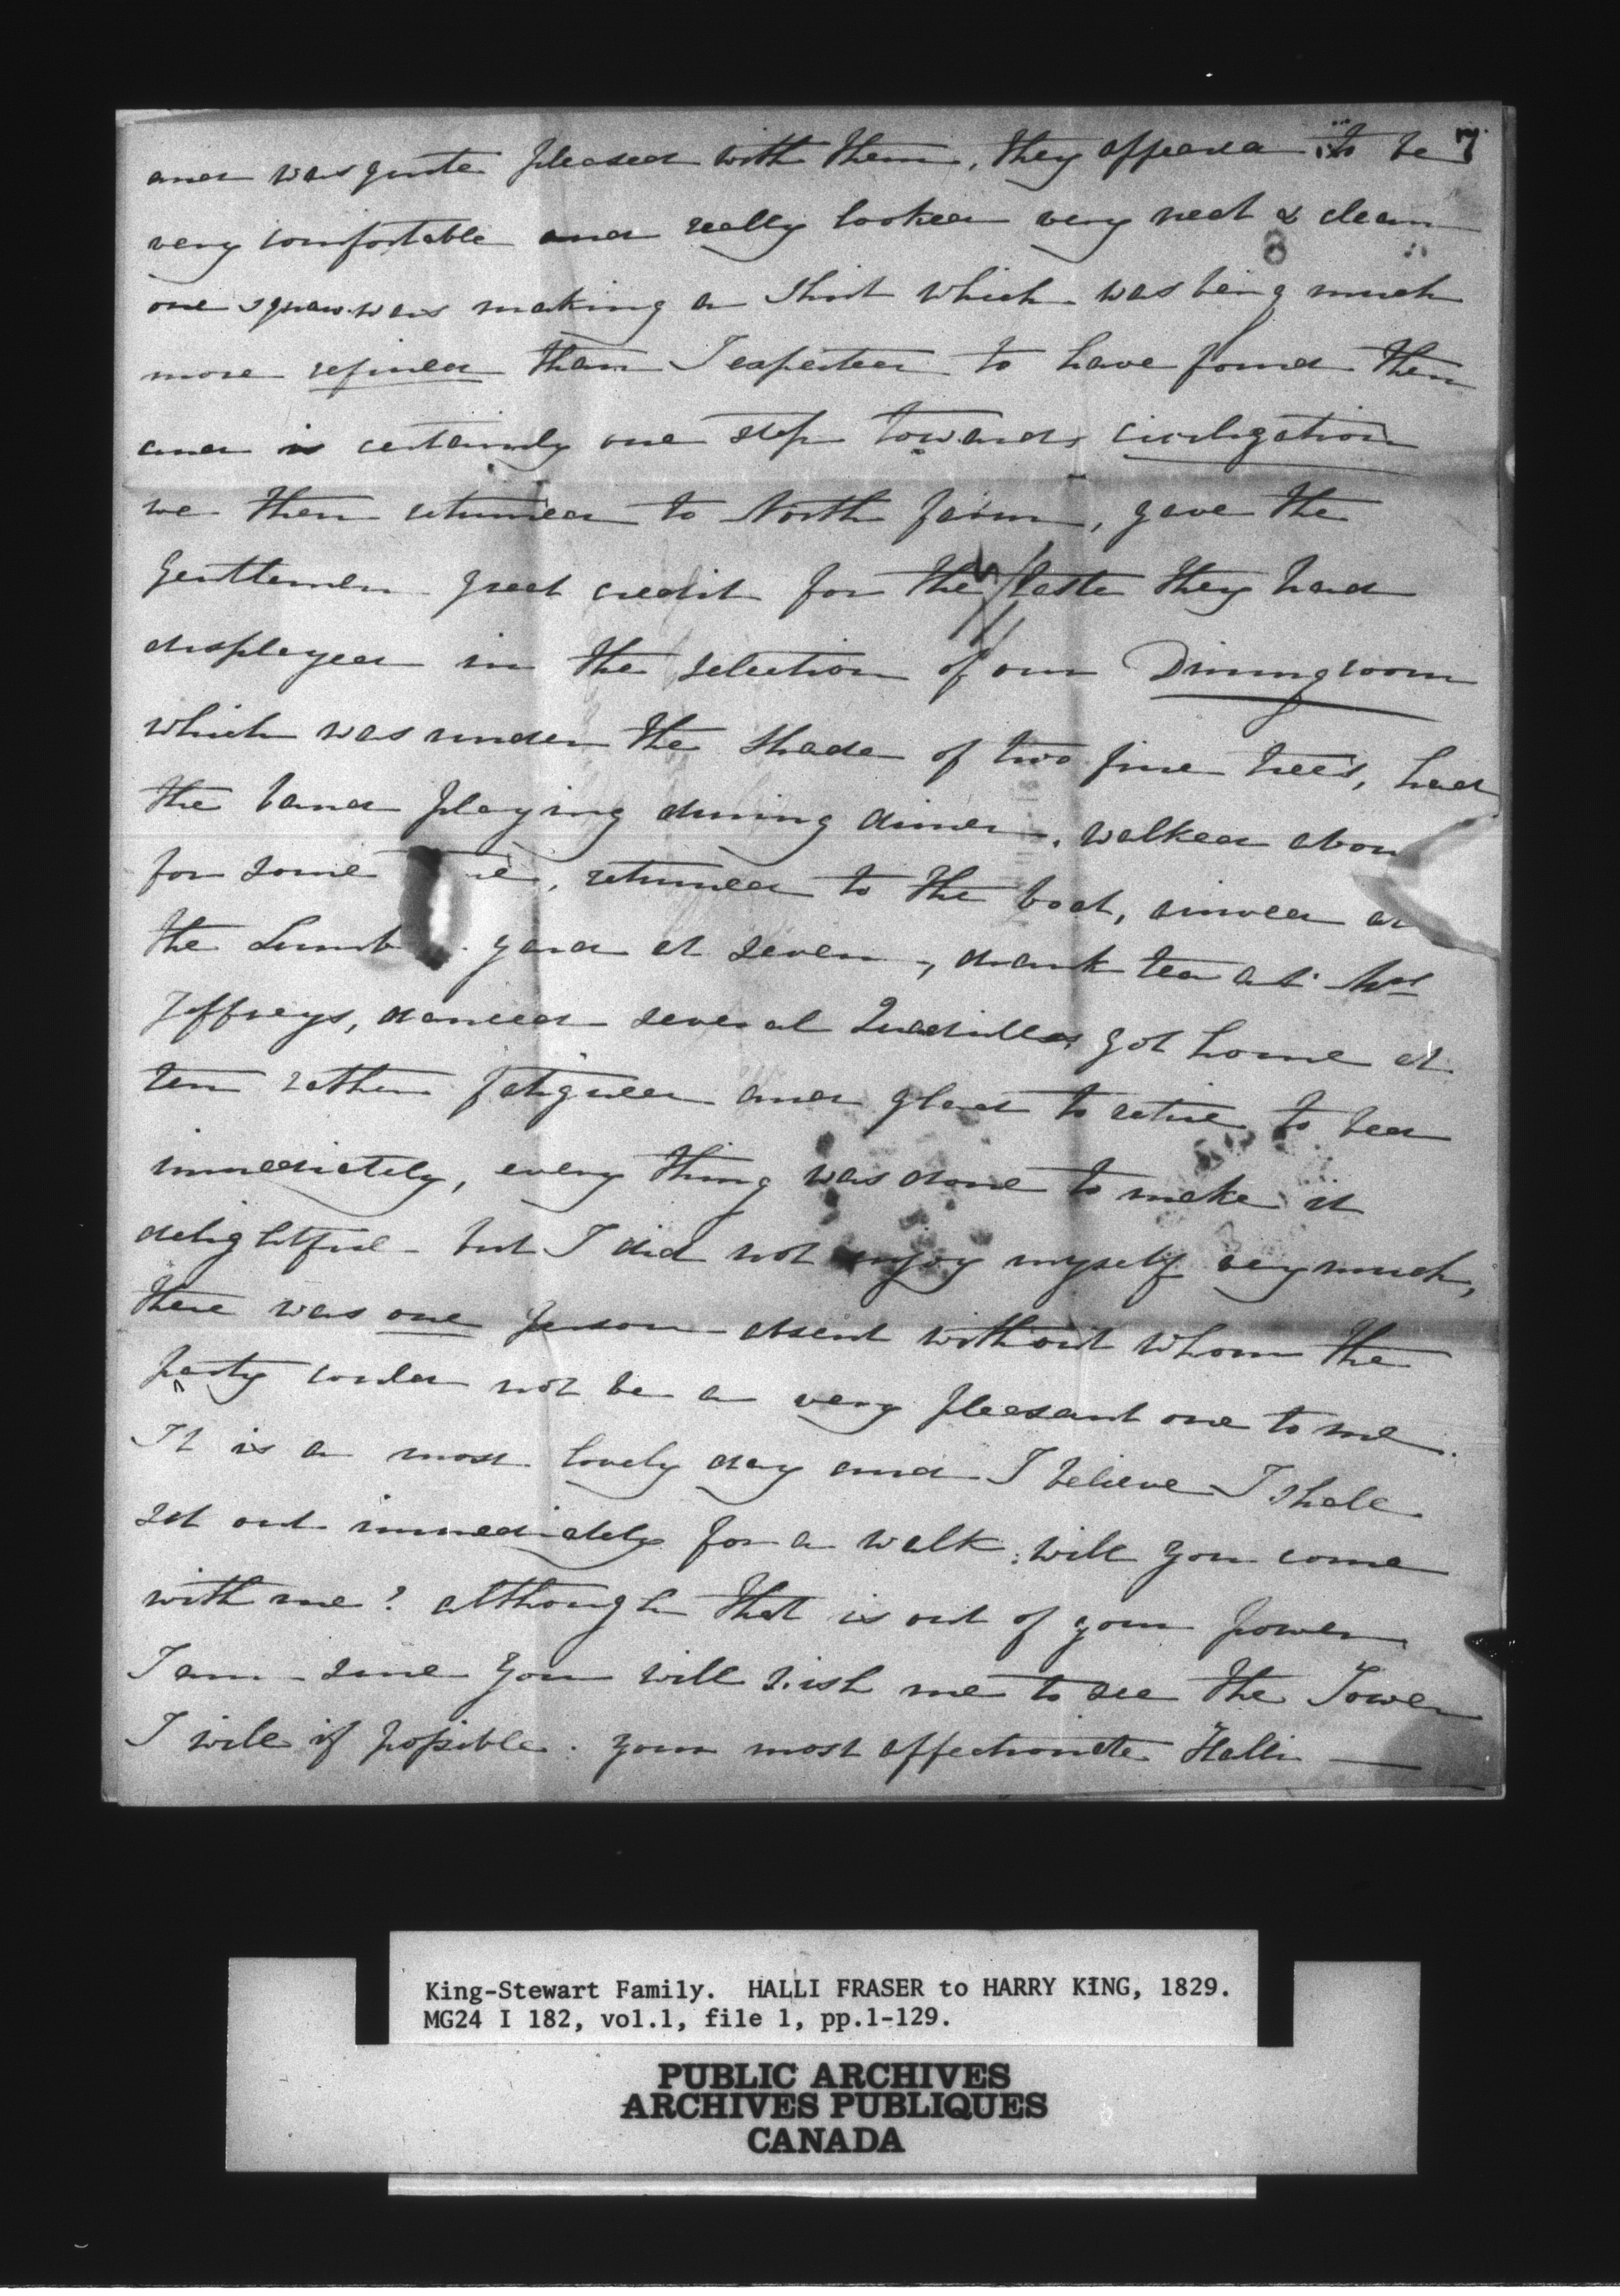 7
and was quite pleased with them, they appeard to be
very comfortable and really looked very neat & clean
one squaw was making a Shirt which was being much
more refined than I expected to have found them
and is certainly one step towards civiligation
we then returned to North farm, gave the
Gentlemen great credit for the taste they had
displayed in the selection of our Diningroom
which was under the Shade of two fine trees, had
the band playing during dinner, walked abou
for some , returned to the boat, arrived at
the Lumb yard at seven, drank tea at Mrs
Jeffreys, danced several Quadrilles, got home at
ten rather fatigued and glad to retire to bed
immediately, every thing was done to make it
delightful - but I did not enjoy myself very much,
there was one person absent without whom the
party could not be a very pleasant one to me.
It is a most lovely day and I believe I shall
set out immediately for a walk: will you come
with me? although that is out of your power
I am sure you will wish me to see the Tower
I will if possible. Your most affectionate Halli
King-Stewart Family. HALLI FRASER to HARRY KING, 1829.
MG24 I 182, vol.1, file 1, pp.1-129.
PUBLIC ARCHIVES
ARCHIVES PUBLIQUES
CANADA